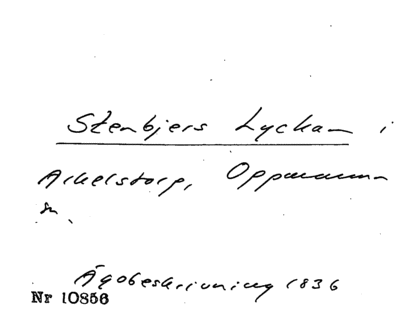 Stenbjers Lyckan i
Arkelstorp, Oppmanna
sn.
Ägobeskrivning 1836
Nr 10856